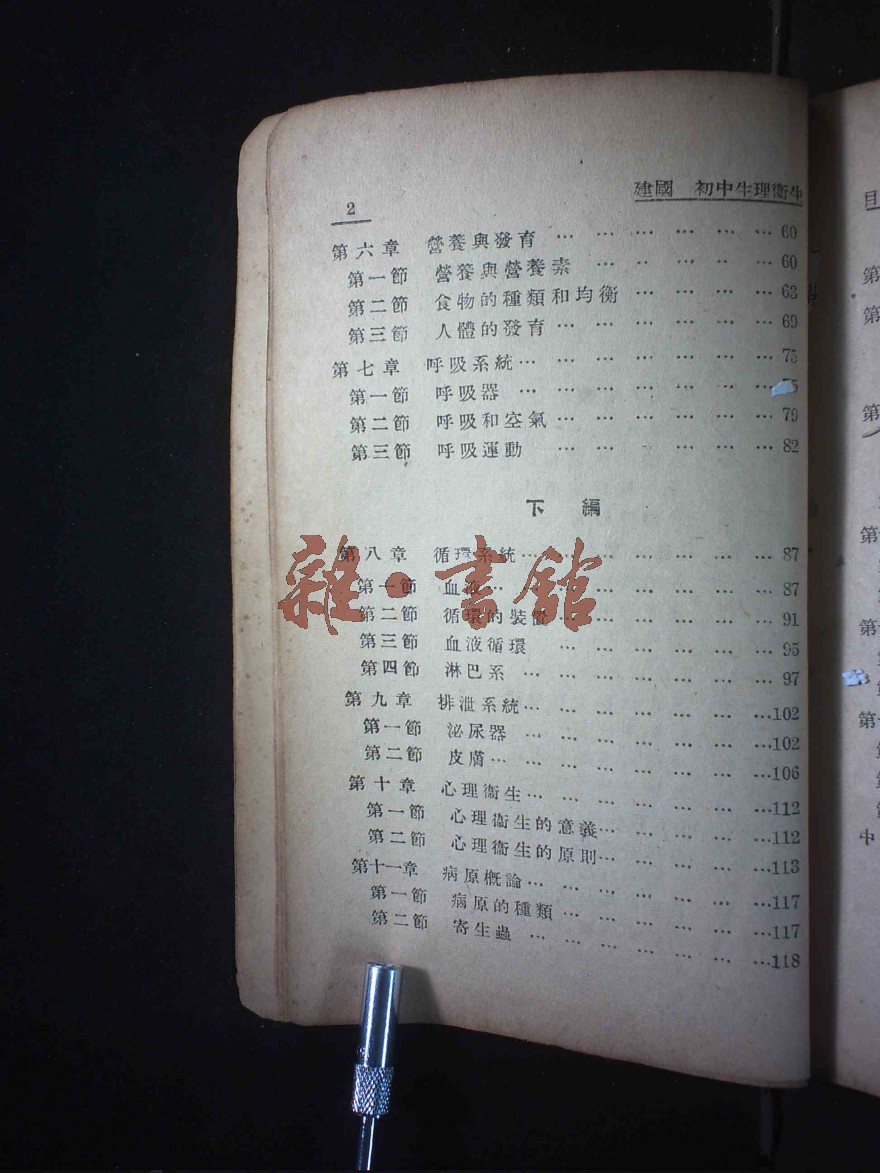 2
建國 初中生理衞生
第六章 營養與發育 … … … … … … 60
第一節 營養與營養素 … … … … … 60
第二節 食物的種類和均衡 … … … … 63
第三節 人體的發育 … … … … … … 69
第七章 呼吸系統 … … … … … … … 75
第一節 呼吸器 … … … … … … 75
第二節 呼吸和空氣 … … … … … … 79
第三節 呼吸運動 … … … … … … 82
下 編
第八章 循環系統 … … … … … … 87
第一節 血液 … … … … … … 87
第二節 循環的裝置 … … … … … 91
第三節 血液循環 … … … … … … 95
第四節 淋巴系 … … … … … … … 97
第九章 排泄系統 … … … … … … … 102
第一節 泌尿器 … … … … … … … 102
第二節 皮膚 … … … … … … … … 106
第十章 心理衞生 … … … … … … … 112
第一節 心理衞生的意義 … … … … … 112
第二節 心理衞生的原則 … … … … … 113
第十一章 病原概論 … … … … … … … 117
第一節 病原的種類 … … … … … … 117
第二節 寄生蟲 … … … … … … … 118
雜·書館
目
第
第
第
第
第
第
中